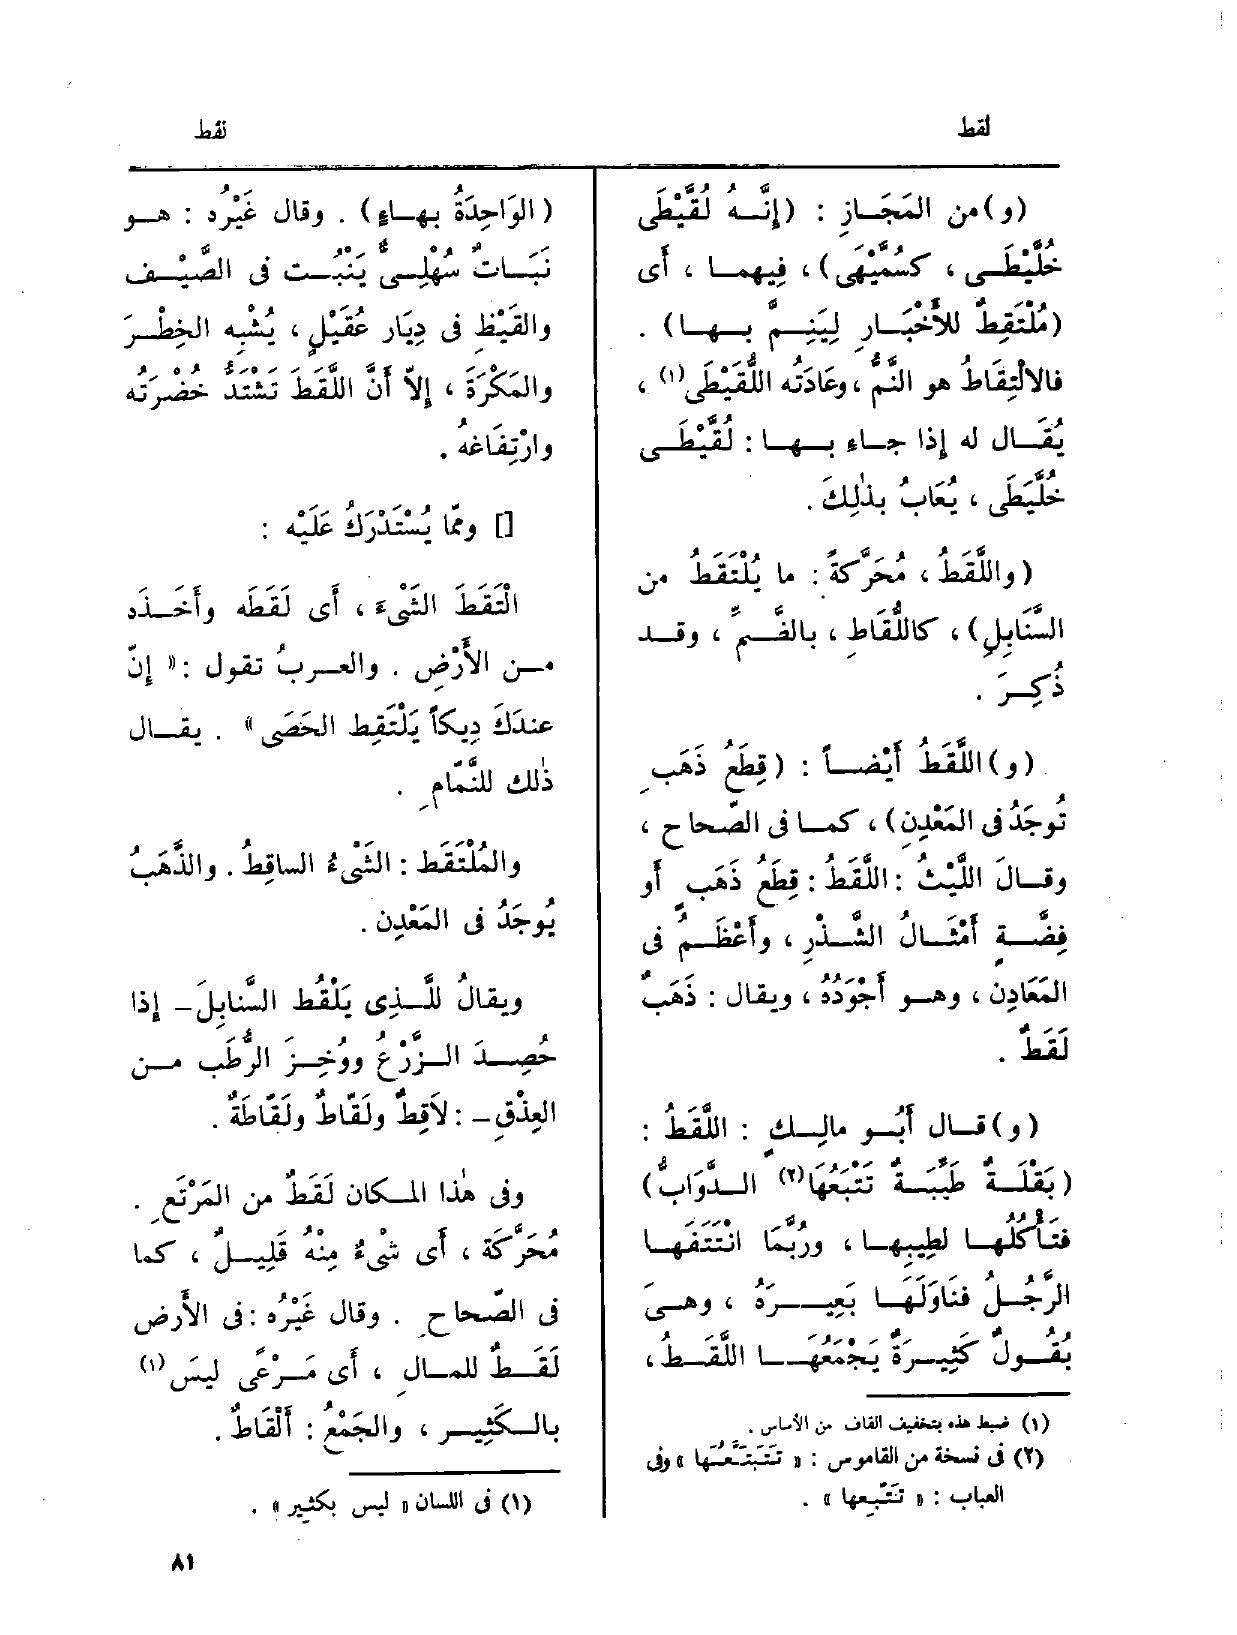 لقط
نقط
(و) من المَجَازِ : (إِنَّــهُ لُقَّيْطَى
خُلَّيْطَــى ، كسُمَّيْهَى) ، فِيهمــا ، أَى
(مُلْتَقِطٌ للأَخْبَــارِ لِيَنِــمَّ بــهــا) .
فالالْتِقَاطُ هو النَّمُّ ، وعَادَتُه اللُّقَّيْطَى(١) ،
يُقَــال له إِذا جــاءَ بــهــا : لُقَّيْطَــى
خُلَّيَطَى ، يُعَابُ بذٰلِكَ .
(واللَّقَطُ ، مُحَرَّكةً : ما يُلْتَقَطُ من
السَّنَابِلِ) ، كاللُّقَاطِ ، بالضَّــمِّ ، وقــد
ذُكِــرَ .
(و) اللَّقَطُ أَيْضــاً : (قِطَعُ ذَهَبٍ
تُوجَدُ فى المَعْدِنِ) ، كمــا فى الصّحاح ،
وقــالَ اللَّيْثُ : اللَّقَطُ : قِطَعُ ذَهَبٍ أَو
فِضَّــةٍ أَمْثَــالُ الشَّــذْرِ ، وأَعْظَــمُ فى
المَعَادِنِ ، وهــو أَجْوَدُهُ ، ويقال : ذَهَبٌ
لَقَطٌ .
(و) قــال أَبُــو مالِــكٍ : اللَّقَطُ :
(بَقْلَــةٌ طَيِّبَــةٌ تَتْبَعُهَا(٢) الــدَّوَابُّ)
فتَأْكُلُهــا لطِيبِهــا ، ورُبَّمَا انْتَتَفَهــا
الرَّجُــلُ فنَاوَلَهَــا بَعِيــرَهُ ، وهــىَ
بُقُــولٌ كَثِيــرَةٌ يَجْمَعُهَــا اللَّقَــطُ ،
(١) ضبط هذه بتخفيف القاف من الأساس .
(٢) فى نسخة من القاموس : « تَتَتَبَّعُهَا » وفى
العباب : « تَتَّبِعها » .
(الوَاحِدَةُ بهــاءٍ) . وقال غَيْرُه : هــو
نَبَــاتٌ سُهْلِــىٌّ يَنْبُــت فى الصَّيْــف
والقَيْظِ فى دِيَار عُقَيْلٍ ، يُشْبِه الخِطْــرَ
والمَكْرَةَ ، إِلاّ أَنَّ اللَّقَطَ تَشْتَدُّ خُضْرَتُه
وارْتِفَاعُهُ .
[] وممّا يُسْتَدْرَكُ عَلَيْه :
الْتَقَطَ الشَّىْءَ ، أَى لَقَطَه وأَخَــذَه
مــن الأَرْضِ . والعــربُ تقول : « إِنّ
عندَكَ دِيكاً يَلْتَقِط الحَصَى » . يقــال
ذٰلك للنَّمّامِ .
والمُلْتَقَط : الشَّىْءُ الساقِطُ . والذَّهَبُ
يُوجَدُ فى المَعْدِن .
ويقالُ للَّــذِى يَلْقُط السَّنابِلَ ــ إِذا
حُصِــدَ الــزَّرْعُ ووُخِــزَ الرُّطَب مــن
العِذْقِ ــ : لاَقِطٌ ولَقّاطٌ ولَقّاطَةٌ .
وفى هٰذا المــكان لَقَطٌ من المَرْتَعِ .
مُحَرَّكَة ، أَى شىْءٌ مِنْهُ قَلِيــلٌ ، كما
فى الصّحاح . وقال غَيْرُه : فى الأَرضِ
لَقَــطٌ للمــال ، أَى مَــرْعًى ليسَ(١)
بالــكَثِيــر ، والجَمْعُ : أَلْقَاطٌ .
(١) فى اللسان « ليس بكَثيرٍ » .
٨١